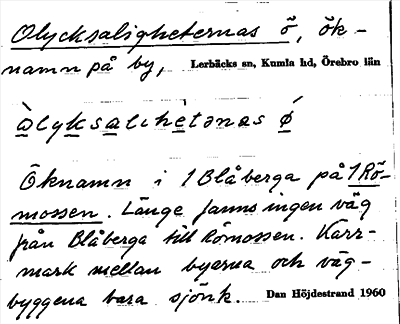 Olycksaligheternas ö, ök-
namn på by, Lerbäcks sn, Kumla hd, Örebro län
òlyksalihètənas ǿ
Öknamn i 1 Blåberga på 1 Rö-
mossen. Länge fanns ingen väg
från Blåberga till Römossen. Kärr-
mark mellan byarna och väg-
byggena bara sjönk. Dan Höjdestrand 1960